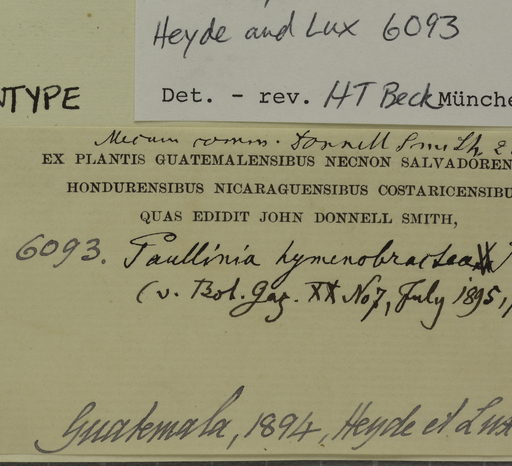 Heyde and Lux 6093
NTYPE
Det. - rev. HT Beck Münche
Mecum comm. Donnell Smith
EX PLANTIS GUATEMALENSIBUS NECNON SALVADOREN
HONDURENSIBUS NICARAGUENSIBUS COSTARICENSIBU
QUAS EDIDIT JOHN DONNELL SMITH,
6093. Paullinia hymenobractea
(v. Bot. Gaz. XX No 7, July 1895,
Guatemala, 1894, Heyde et Lux